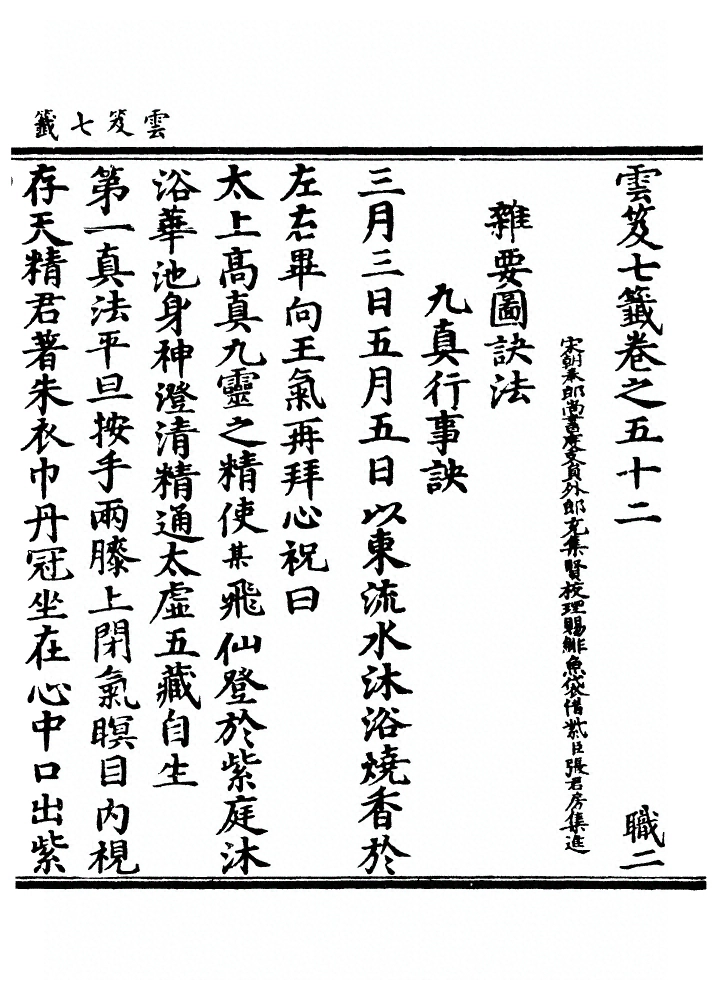 雲笈七籤
雲笈七籤卷之五十二
職二
宋朝奉郎尚書度支員外郎充集賢校理賜緋魚袋借紫臣張君房集進
雜要圖訣法
九真行事訣
三月三日五月五日以東流水沐浴燒香於
左右畢向王氣再拜心祝曰
太上高真九靈之精使某飛仙登於紫庭沐
浴華池身神澄清精通太虛五藏自生
第一真法平旦按手兩膝上閉氣瞑目內視
存天精君著朱衣巾丹冠坐在心中口出紫